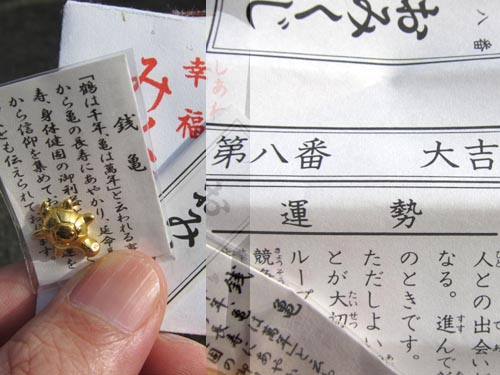 銭亀
「鶴は千年、亀は萬年」と云われる事
から亀の長寿にあやかり、延命
寿、身体健固の御利
から信仰を集めてお
とも伝えられてお
幸福
しあわ
み
み
おみくじ
第八番 大吉
運勢
人との出会い
なる。進んで
のときです。
ただしよい
とが大切
ループ
競
銭亀
年、亀は萬年」と云
長寿